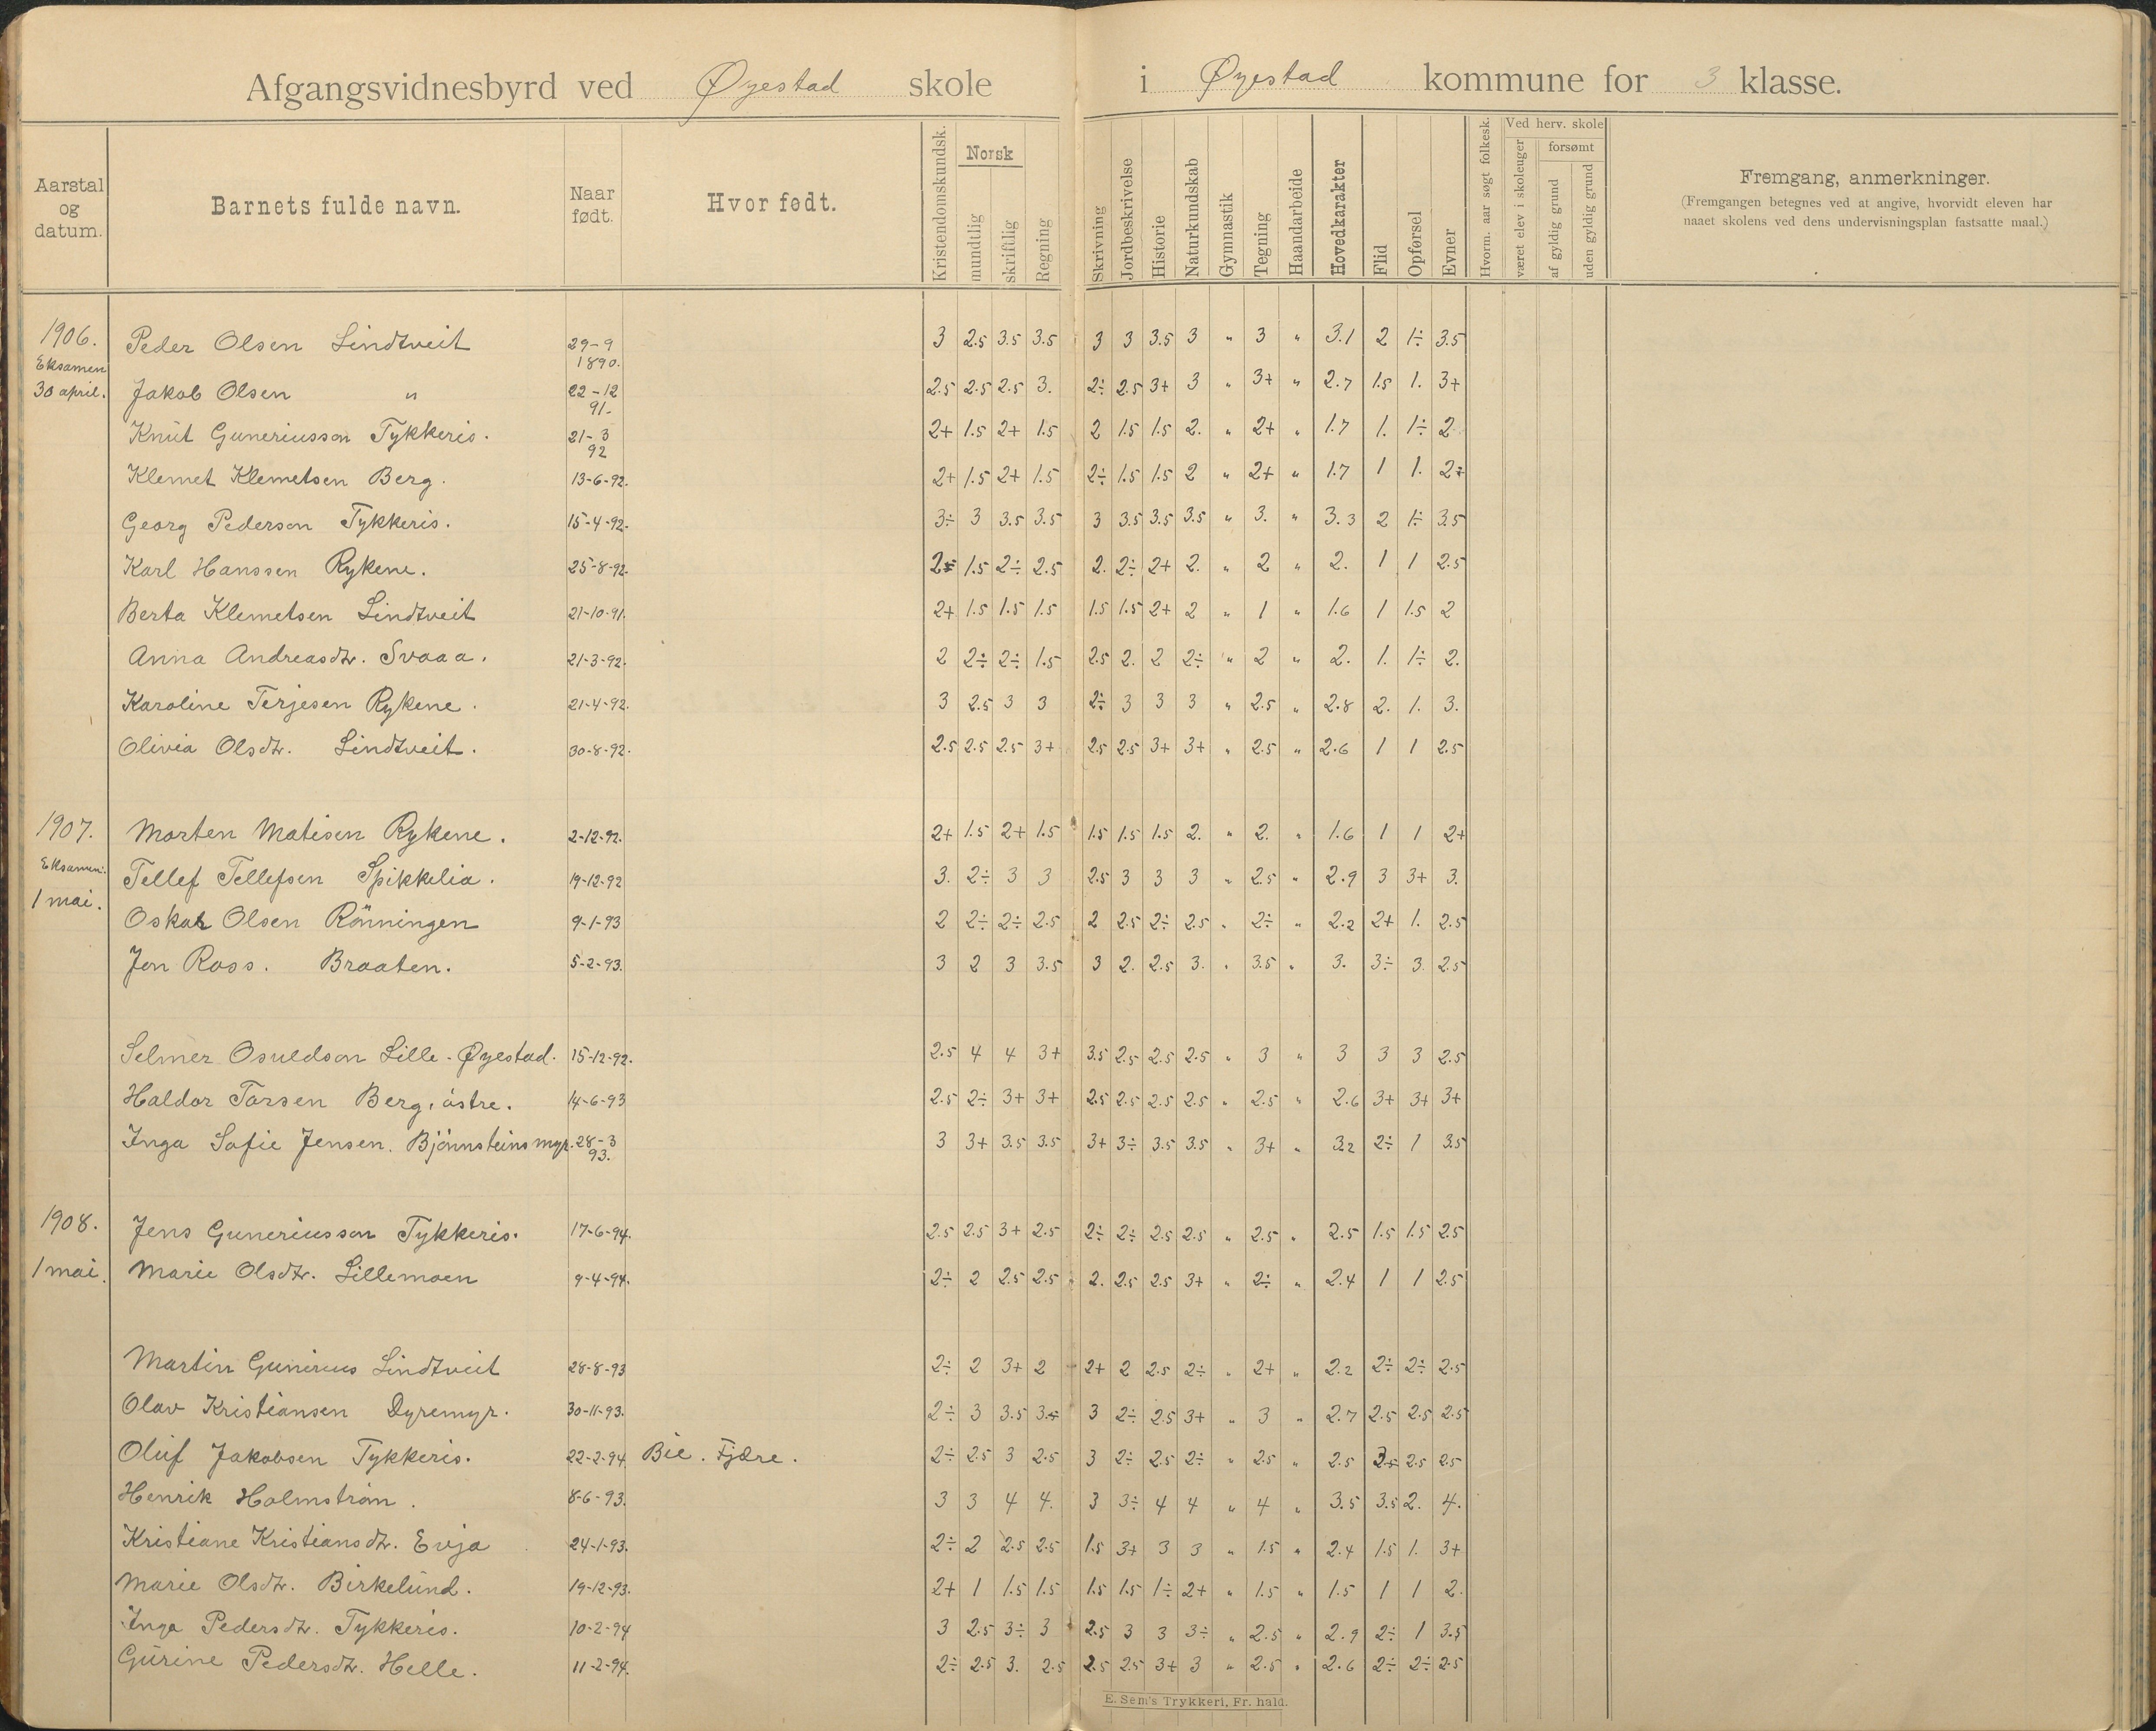 Afgangsvidnesbyrd ved Øyestad skole i Øyestad kommune for 3 klasse.
Aarstal og datum.
Barnets fulde navn.
Naar født.
Hvor født.
Kristendomskundsk.
Norsk
mundtlig
skriftlig
Regning
Skrivning
Jordbeskrivelse
Historie
Naturkundskab
Gymnastik
Tegning
Haandarbeide
Hovedkarakter
Flid
Opførsel
Evner
Hvorm. aar søgt folkesk.
Ved herv. skole
været elev i skoleuger
forsømt
af gyldig grund
uden gyldig grund
Fremgang, anmerkninger.
(Fremgangen betegnes ved at angive, hvorvidt eleven har
naaet skolens ved dens undervisningsplan fastsatte maal.)
1906. Peder Olsen Lindtveit 29-9 1890. 3 2.5 3.5 3.5 3 3 3.5 3 " 3 " 3.1 2 1÷ 3.5
Eksamen
30 april. Jakob Olsen " 22-12 91- 2.5 2.5 2.5 3. 2÷ 2.5 3+ 3 " 3+ " 2.7 1.5 1. 3+
Knut Guneriusson Tykkeris. 21-3 92 2+ 1.5 2+ 1.5 2 1.5 1.5 2. " 2+ " 1.7 1. 1÷ 2
Klemet Klemetsen Berg. 13-6-92. 2+ 1.5 2+ 1.5 2÷ 1.5 1.5 2 " 2+ " 1.7 1 1. 2÷
Georg Pederson Tykkeris. 15-4-92. 3÷ 3 3.5 3.5 3 3.5 3.5 3.5 " 3. " 3.3 2 1÷ 3.5
Karl Hanssen Rykene. 25-8-92. 2÷ 1.5 2÷ 2.5 2. 2÷ 2+ 2. " 2 " 2. 1 1 2.5
Berta Klemetsen Lindtveit 21-10-91. 2+ 1.5 1.5 1.5 1.5 1.5 2+ 2 " 1 " 1.6 1 1.5 2
Anna Andreasdtr. Svaaa. 21-3-92. 2 2÷ 2÷ 1.5 2.5 2. 2 2÷ " 2 " 2. 1. 1÷ 2.
Karoline Terjesen Rykene. 21-4-92. 3 2.5 3 3 2÷ 3 3 3 " 2.5 " 2.8 2. 1. 3.
Olivia Olsdtr. Lindtveit. 30-8-92. 2.5 2.5 2.5 3+ 2.5 2.5 3+ 3+ " 2.5 " 2.6 1 1 2.5
1907. Morten Matisen Rykene. 2-12-92. 2+ 1.5 2+ 1.5 1.5 1.5 1.5 2. " 2. " 1.6 1 1 2+
Eksamen. Tellef Tellefsen Spikkelia. 19-12-92 3. 2÷ 3 3 2.5 3 3 3 " 2.5 " 2.9 3 3+ 3.
1 mai. Oskar Olsen Rönningen 9-1-93 2 2÷ 2÷ 2.5 2 2.5 2÷ 2.5 " 2÷ " 2.2 2+ 1. 2.5
Jon Ross. Braaten. 5-2-93. 3 2 3 3.5 3 2. 2.5 3. " 3.5 " 3. 3÷ 3. 2.5
Selmer Osuldson Lille-Øyestad. 15-12-92. 2.5 4 4 3+ 3.5 2.5 2.5 2.5 " 3 " 3 3 3 2.5
Haldor Torsen Berg, östre. 14-6-93 2.5 2÷ 3+ 3+ 2.5 2.5 2.5 2.5 " 2.5 " 2.6 3+ 3+ 3+
Inga Sofie Jensen. Bjönnsteinsmyr. 28-3 93. 3 3+ 3.5 3.5 3+ 3÷ 3.5 3.5 " 3+ " 3.2 2÷ 1 3.5
1908. Jens Guneriusson Tykkeris. 17-6-94. 2.5 2.5 3+ 2.5 2÷ 2÷ 2.5 2.5 " 2.5 " 2.5 1.5 1.5 2.5
1 mai. Marie Olsdtr. Lillemoen 9-4-94. 2÷ 2 2.5 2.5 2. 2.5 2.5 3+ " 2÷ " 2.4 1 1 2.5
Martin Gunirius Lindtveit 28-8-93 2÷ 2 3+ 2 2+ 2 2.5 2÷ " 2+ " 2.2 2÷ 2÷ 2.5
Olav Kristiansen Dyremyr. 30-11-93. 2÷ 3 3.5 3÷ 3 2÷ 2.5 3+ " 3 " 2.7 2.5 2.5 2.5
Oluf Jakobsen Tykkeris. 22-2-94 Bie. Fjære. 2÷ 2.5 3 2.5 3 2÷ 2.5 2÷ " 2.5 " 2.5 2.5 2.5
Henrik Holmström. 8-6-93. 3 3 4 4. 3 3÷ 4 4 " 4 " 3.5 3.5 2. 4.
Kristiane Kristiansdtr. Evja 24-1-93. 2÷ 2 2.5 2.5 1.5 3+ 3 3 " 1.5 " 2.4 1.5 1. 3+
Marie Olsdtr. Birkelund. 19-12-93. 2+ 1 1.5 1.5 1.5 1.5 1÷ 2+ " 1.5 " 1.5 1 1 2.
Inga Pedersdtr. Tykkeris. 10-2-94 3 2.5 3÷ 3 2.5 3 3 3÷ " 2.5 " 2.9 2÷ 1 3.5
Gurine Pedersdtr. Helle. 11-2-94. 2÷ 2.5 3. 2.5 2.5 2.5 3+ 3 " 2.5 " 2.6 2÷ 2÷ 2.5
E. Sem's Trykkeri, Fr. hald.